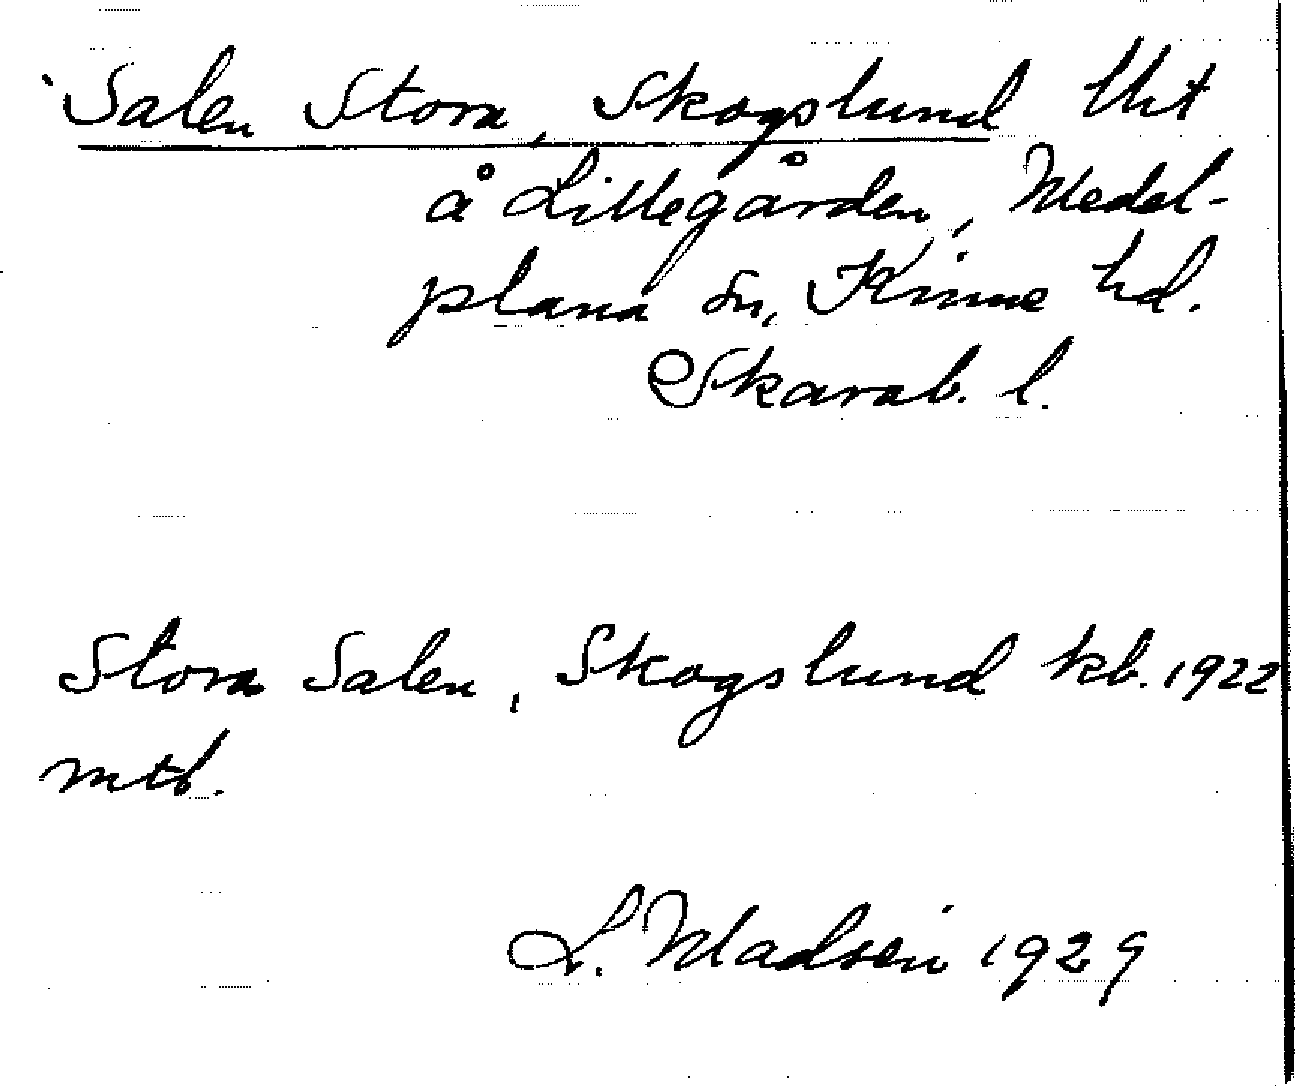 Salen Stora, Skogslund lht
å Lillegården, Medel-
plana sn, Kinne hd.
Skarab. l.
Stora Salen, Skogslund kb. 1922
mtb.
L. Madsén 1929